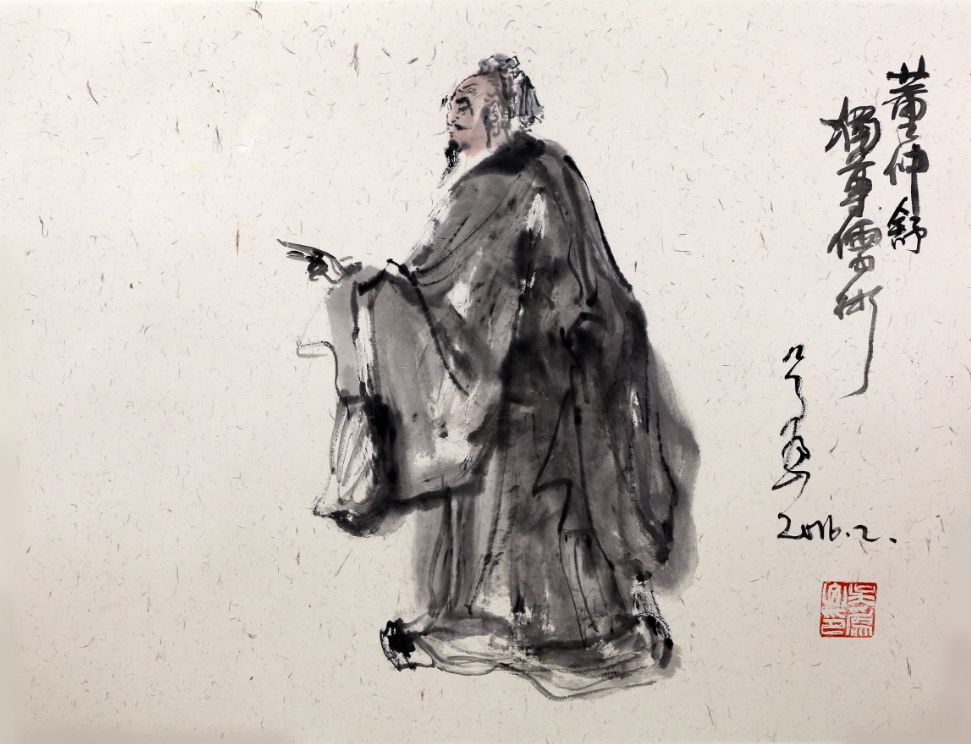 董仲舒
獨尊儒術
2016.2.